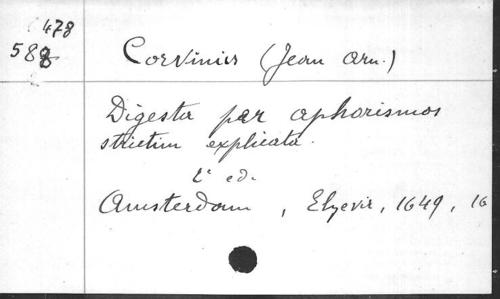 478
588
Corvinus (Jean Arn.)
Digesta per aphorismos
strictim explicata.
ed.
Amsterdam, Elzevir, 1649, 16